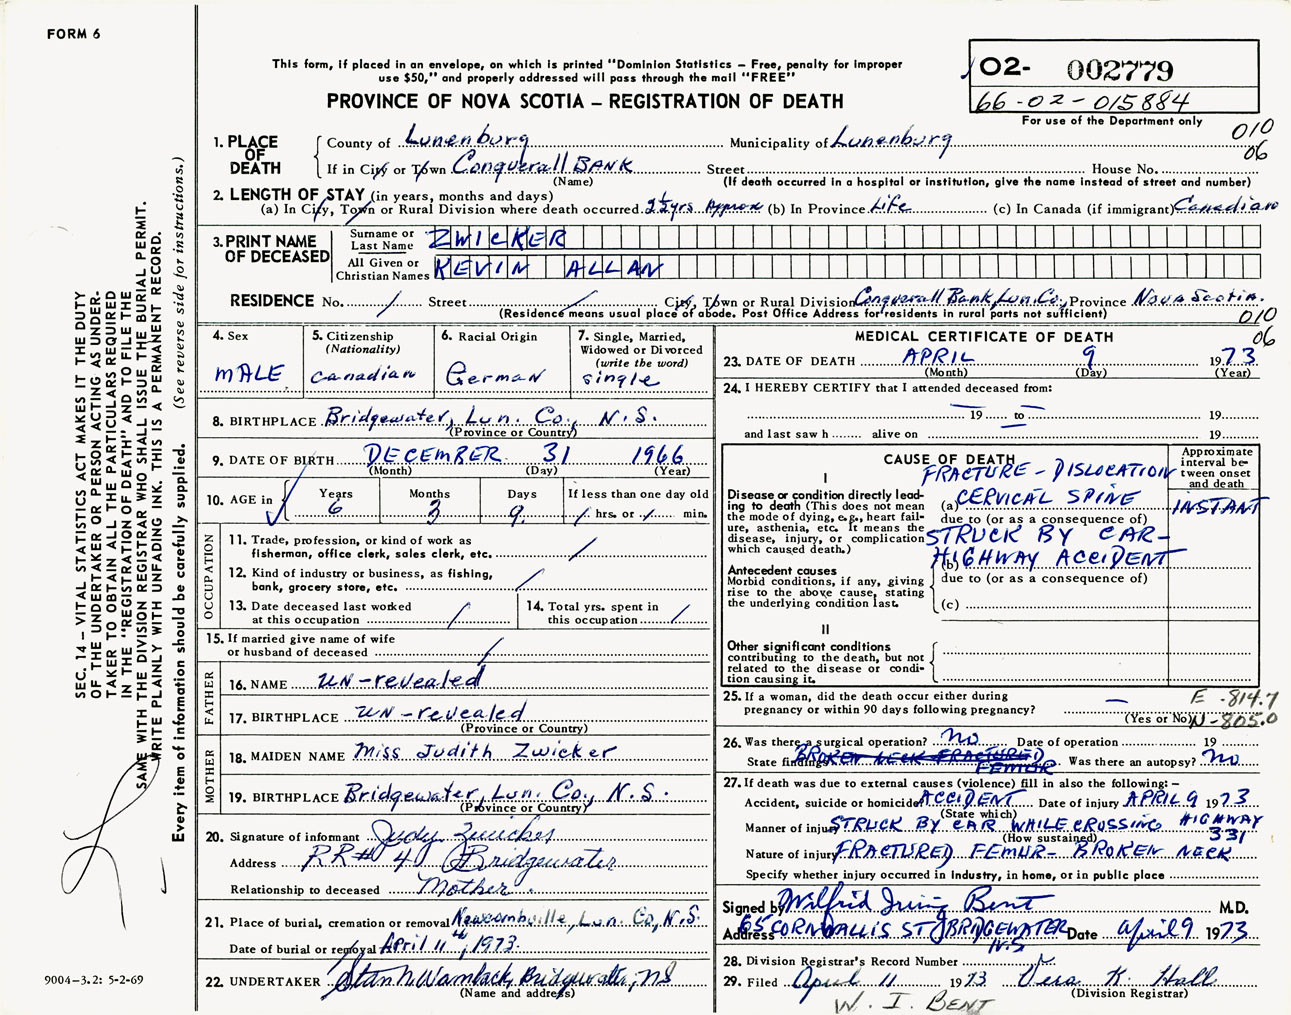 FORM 6
This form, if placed in an envelope, on which is printed "Dominion Statistics – Free, penalty for improper
use $50," and properly addressed will pass through the mail "FREE"
PROVINCE OF NOVA SCOTIA – REGISTRATION OF DEATH
02- 002779
66-02-015884
For use of the Department only
010
06
1. PLACE OF DEATH
County of Lunenburg Municipality of Lunenburg
If in City or Town Conquerall BANK Street House No.
(Name) (If death occurred in a hospital or institution, give the name instead of street and number)
2. LENGTH OF STAY (in years, months and days)
(a) In City, Town or Rural Division where death occurred 2½ yrs Approx (b) In Province Life (c) In Canada (if immigrant) Canadian
3. PRINT NAME OF DECEASED
Surname or Last Name ZWICKER
All Given or Christian Names KEVIN ALLAN
RESIDENCE No. / Street / City, Town or Rural Division Conquerall Bank, Lun. Co., Province Nova Scotia.
(Residence means usual place of abode. Post Office Address for residents in rural parts not sufficient)
010
06
4. Sex
MALE
5. Citizenship
(Nationality)
Canadian
6. Racial Origin
German
7. Single, Married,
Widowed or Divorced
(write the word)
single
8. BIRTHPLACE Bridgewater, Lun. Co., N.S.
(Province or Country)
9. DATE OF BIRTH DECEMBER 31 1966
(Month) (Day) (Year)
10. AGE in
Years Months Days If less than one day old
6 3 9. / hrs. or / min.
OCCUPATION
11. Trade, profession, or kind of work as
fisherman, office clerk, sales clerk, etc. /
12. Kind of industry or business, as fishing,
bank, grocery store, etc. /
13. Date deceased last worked
at this occupation /
14. Total yrs. spent in
this occupation /
15. If married give name of wife
or husband of deceased /
FATHER
16. NAME UN-revealed
17. BIRTHPLACE UN-revealed
(Province or Country)
MOTHER
18. MAIDEN NAME Miss Judith Zwicker
19. BIRTHPLACE Bridgewater, Lun. Co., N.S.
(Province or Country)
20. Signature of informant Judy Zwicker
Address RR# 4 Bridgewater
Relationship to deceased Mother.
21. Place of burial, cremation or removal Newcombville, Lun. Co, N.S.
Date of burial or removal April 11th, 1973.
22. UNDERTAKER Stan N. Wambach, Bridgewater, NS
(Name and address)
MEDICAL CERTIFICATE OF DEATH
23. DATE OF DEATH APRIL 9 1973
(Month) (Day) (Year)
24. I HEREBY CERTIFY that I attended deceased from:
— 19 to — 19
and last saw h alive on 19
CAUSE OF DEATH
Approximate
interval be-
tween onset
and death
I
Disease or condition directly lead-
ing to death (This does not mean
the mode of dying, e.g., heart fail-
ure, asthenia, etc. It means the
disease, injury, or complication
which caused death.)
FRACTURE - DISLOCATION
(a) CERVICAL SPINE
INSTANT
due to (or as a consequence of)
STRUCK BY CAR-
(b) HIGHWAY ACCIDENT
due to (or as a consequence of)
(c)
Antecedent causes
Morbid conditions, if any, giving
rise to the above cause, stating
the underlying condition last.
II
Other significant conditions
contributing to the death, but not
related to the disease or condi-
tion causing it.
25. If a woman, did the death occur either during
pregnancy or within 90 days following pregnancy? —
(Yes or No)
E -814.7
N-805.0
26. Was there a surgical operation? No Date of operation 19
State findings BROKEN NECK FRACTURED FEMUR Was there an autopsy? No
27. If death was due to external causes (violence) fill in also the following:–
Accident, suicide or homicide ACCIDENT Date of injury APRIL 9 1973
(State which)
Manner of injury STRUCK BY CAR WHILE CROSSING HIGHWAY 331
(How sustained)
Nature of injury FRACTURED FEMUR- BROKEN NECK
Specify whether injury occurred in Industry, in home, or in public place
Signed by Wilfrid Irving Bent M.D.
Address 65 CORNWALLIS ST BRIDGEWATER NS Date April 9 1973
28. Division Registrar's Record Number
29. Filed April 11 1973 Vera K. Hall
(Division Registrar)
W. I. BENT
SEC. 14 – VITAL STATISTICS ACT MAKES IT THE DUTY
OF THE UNDERTAKER OR PERSON ACTING AS UNDER-
TAKER TO OBTAIN ALL THE PARTICULARS REQUIRED
IN THE "REGISTRATION OF DEATH" AND TO FILE THE
SAME WITH THE DIVISION REGISTRAR WHO SHALL ISSUE THE BURIAL PERMIT.
WRITE PLAINLY WITH UNFADING INK. THIS IS A PERMANENT RECORD.
Every item of information should be carefully supplied. (See reverse side for instructions.)
9004-3.2: 5-2-69